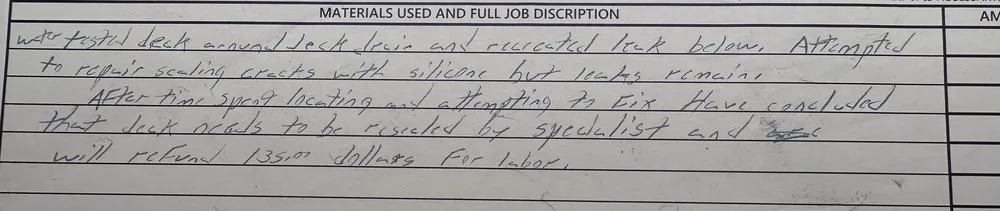 MATERIALS USED AND FULL JOB DISCRIPTION
AM
water tested deck around deck drain and recreated leak below. Attempted
to repair sealing cracks with silicone but leaks remain.
After time spent locating and attempting to Fix. Have concluded
that deck needs to be resealed by specialist and
will refund 135.00 dollars For labor.